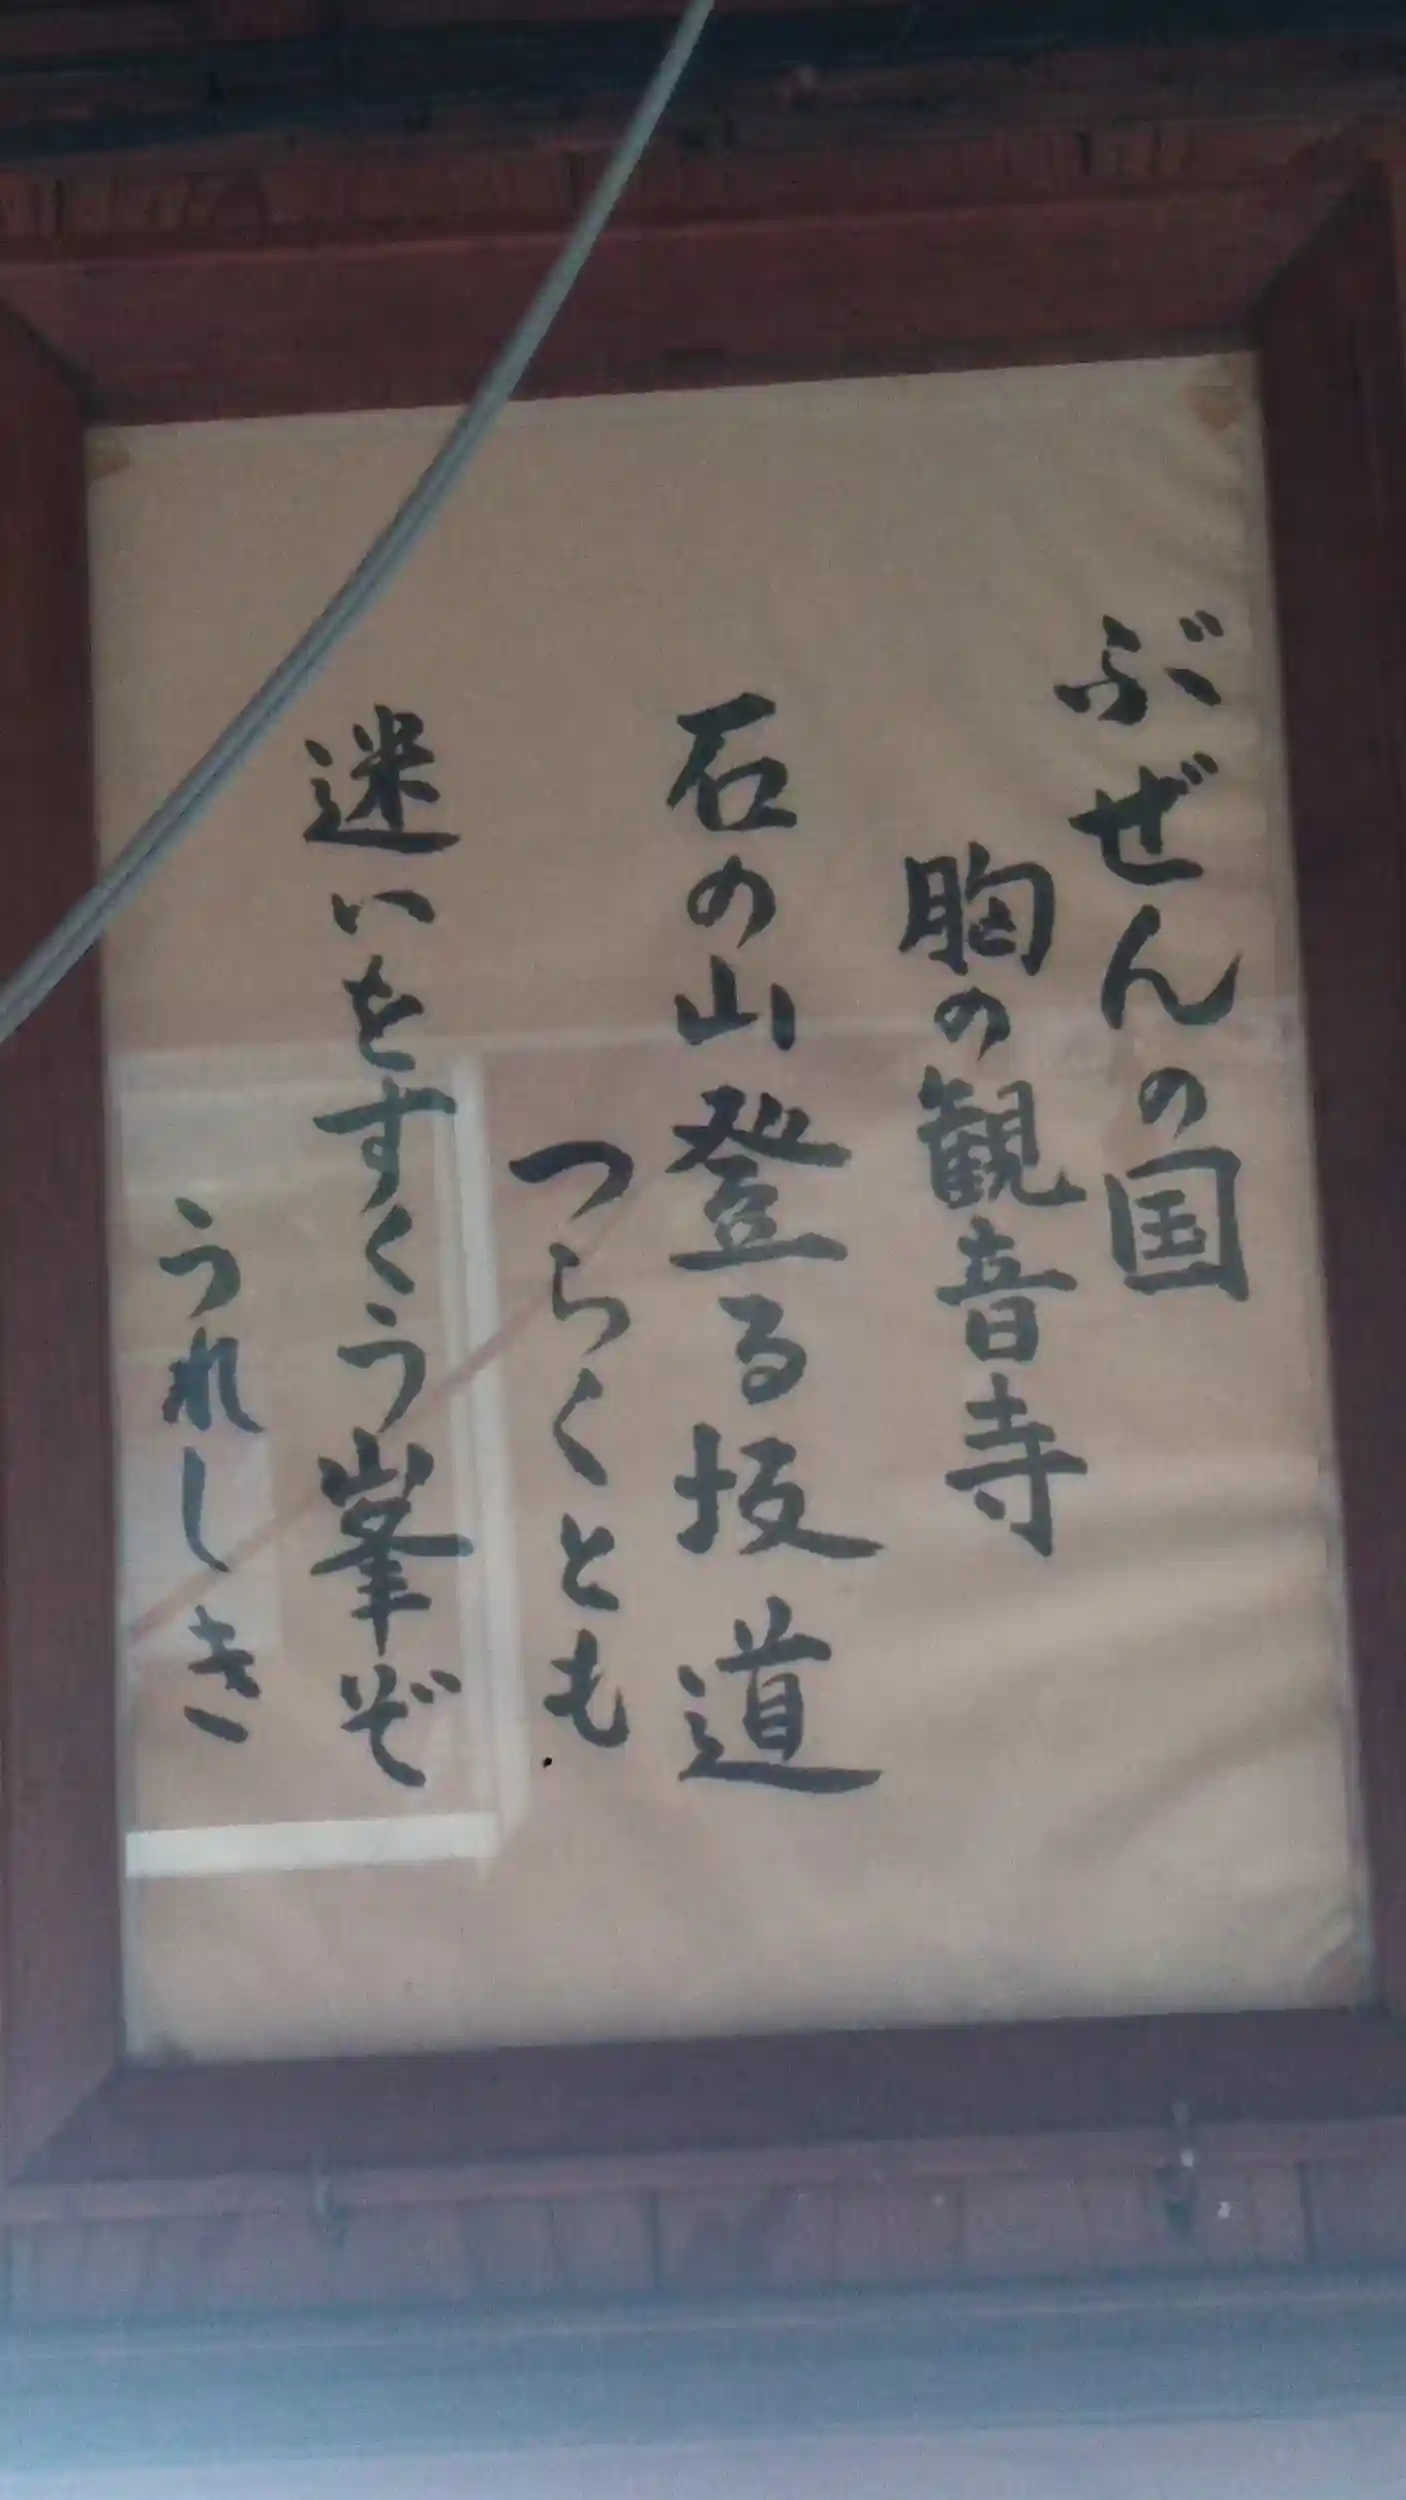 ぶぜんの国
胸の観音寺
石の山登る坂道
つらくとも
迷いをすくう峯ぞ
うれしき